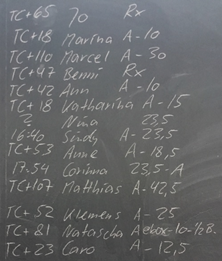 TC+65 Jo Rx
TC+18 Marina A-10
TC+110 Marcel A-30
TC+47 Benni Rx
TC+42 Ann A-10
TC+18 Katharina A-15
2 Nina 23,5
16:40 Sindy A-23,5
TC+53 Anne A-18,5
17:54 Corinna 23,5-A
TC+107 Matthias A-42,5
TC+52 Klemens A-25
TC+21 Natascha A
TC+23 Caro A-12,5